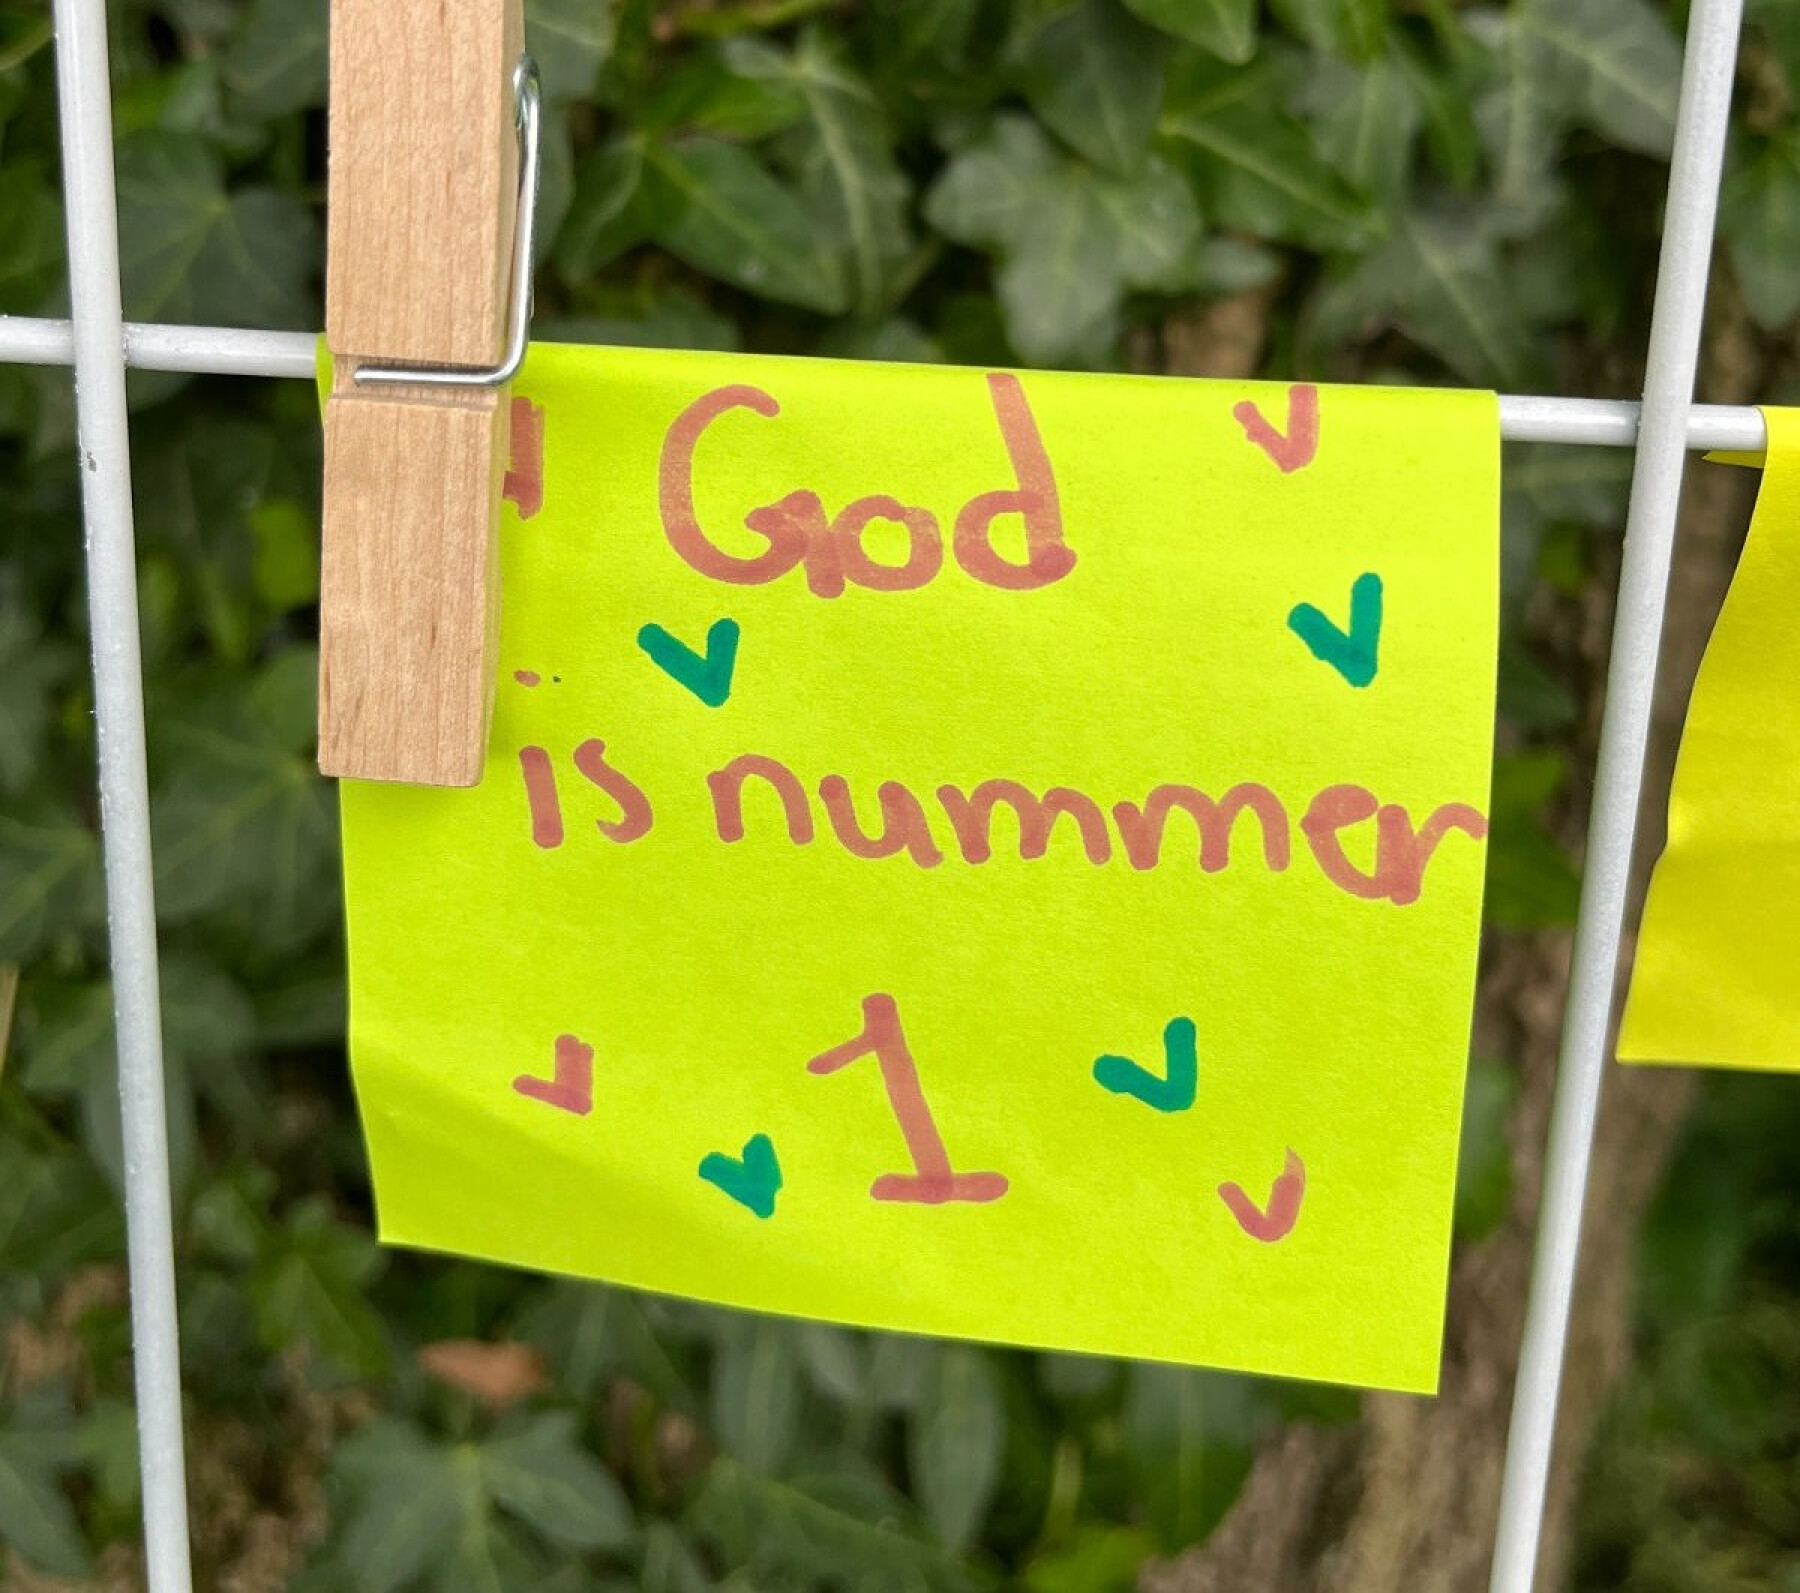 God
is nummer
1